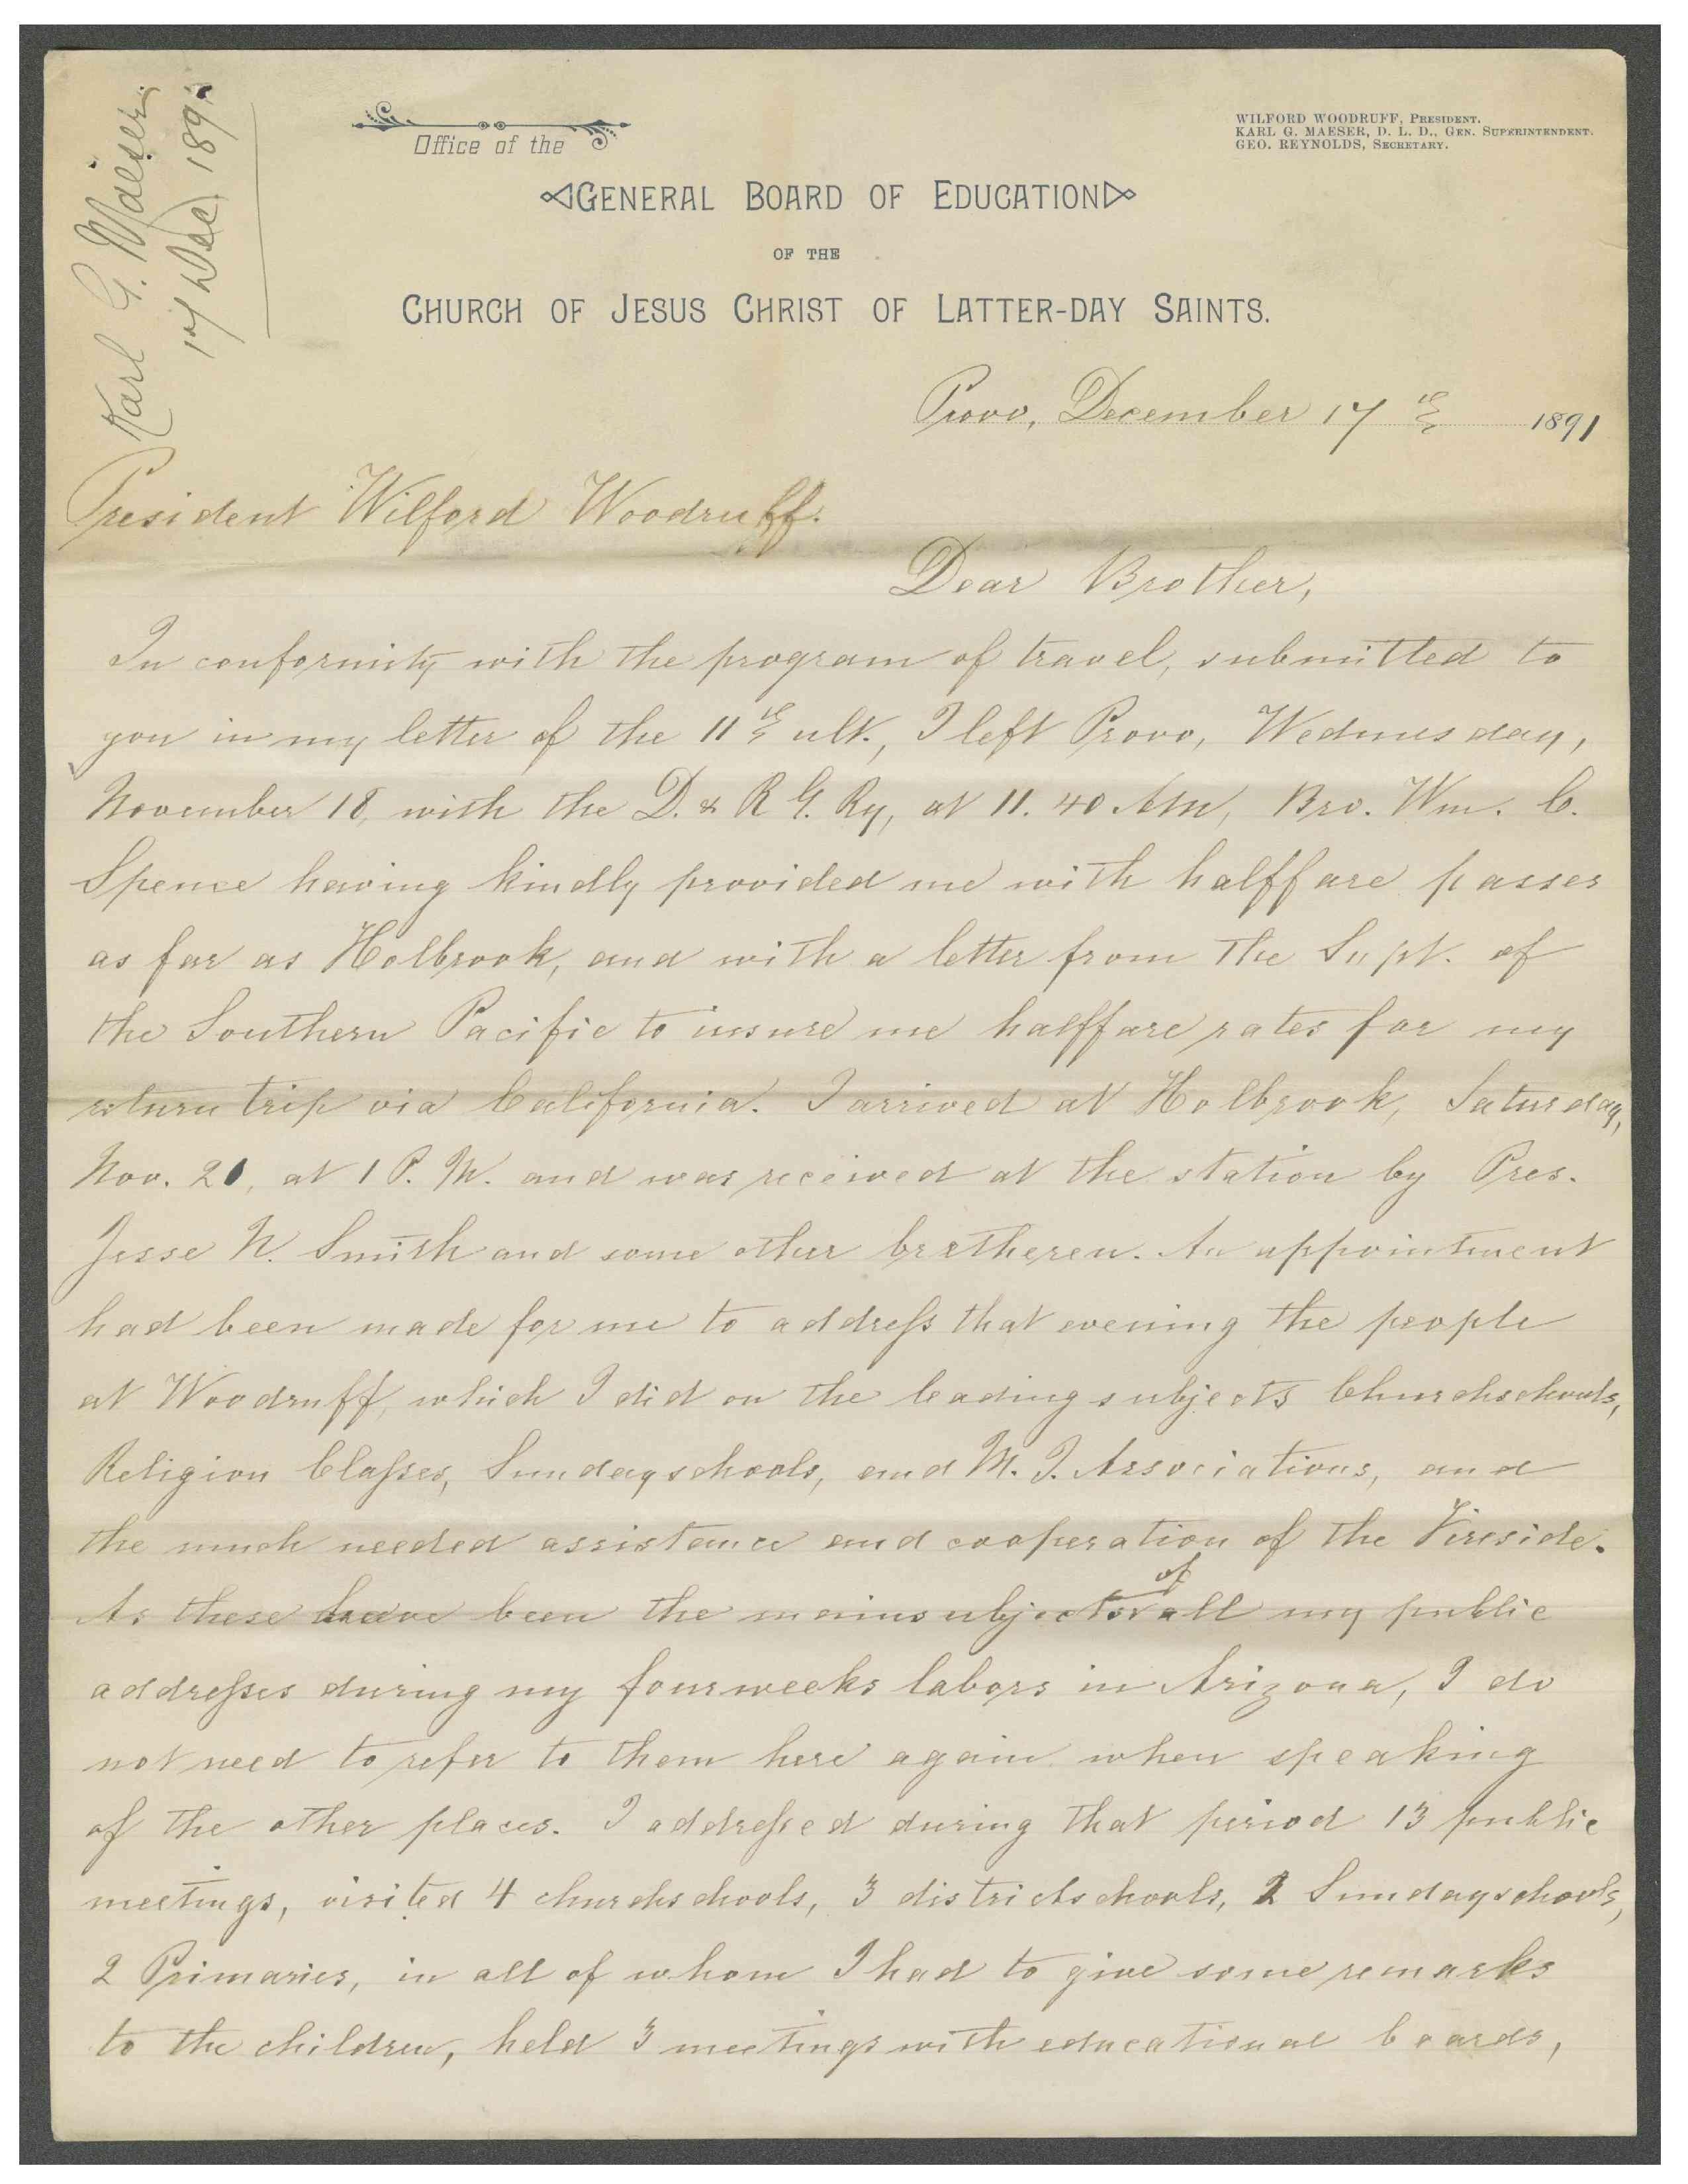 Karl G. Maeser.
17 Dec. 189
Office of the
WILFORD WOODRUFF, PRESIDENT.
KARL G. MAESER, D. L. D., GEN. SUPERINTENDENT.
GEO. REYNOLDS, SECRETARY.
GENERAL BOARD OF EDUCATION
OF THE
CHURCH OF JESUS CHRIST OF LATTER-DAY SAINTS.
Provo, December 17th 1891
President Wilford Woodruff.
Dear Brother,
In conformity with the program of travel, submitted to
you in my letter of the 11th ult., I left Provo, Wednesday,
November 18, with the D. & R G. Ry, at 11.40 AM, Bro. Wm. C.
Spence having kindly provided me with halffare passes
as far as Holbrook, and with a letter from the Supt. of
the Southern Pacific to insure me halffare rates for my
return trip via California. I arrived at Holbrook, Saturday,
Nov. 21, at 1 P. M. and was received at the station by Pres.
Jesse N. Smith and some other bretheren. An appointment
had been made for me to address that evening the people
at Woodruff, which I did on the leading subjects Churchschools,
Religion Classes, Sundayschools, and M. I. Associations, and
the much needed assistance and cooperation of the Fireside.
As these have been the mainsubjects of all my public
addresses during my fourweeks labors in Arizona, I do
not need to refer to them here again when speaking
of the other places. I addressed during that period 13 public
meetings, visited 4 churchschools, 3 districtschools, 2 Sundayschools,
2 Primaries, in all of whom I had to give some remarks
to the children, held 3 meetings with educational boards,